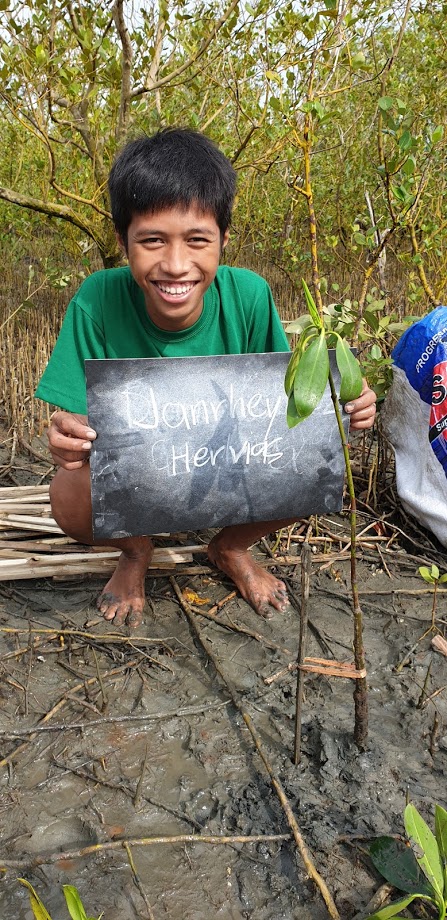 Danrhey
Hermas
PROGRES
S